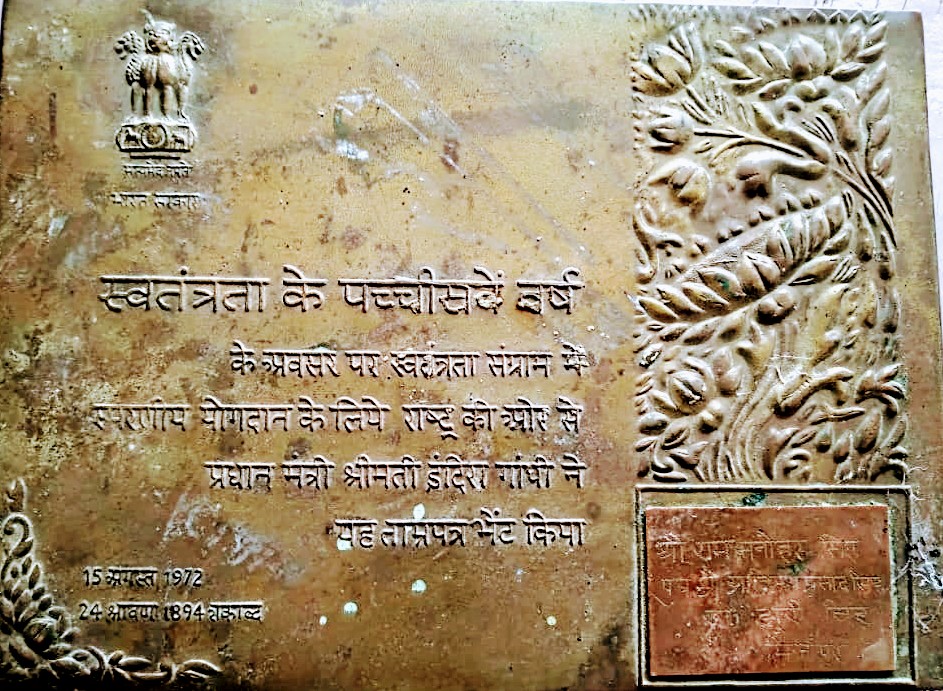 सत्यमेव जयते
भारत सरकार
स्वतंत्रता के पच्चीसवें वर्ष
के अवसर पर स्वतंत्रता संग्राम में
स्मरणीय योगदान के लिये राष्ट्र की ओर से
प्रधान मंत्री श्रीमती इंदिरा गांधी ने
यह ताम्रपत्र भेंट किया
15 अगस्त 1972
24 श्रावण 1894 शकाब्द
श्री राम मनोहर सिंह